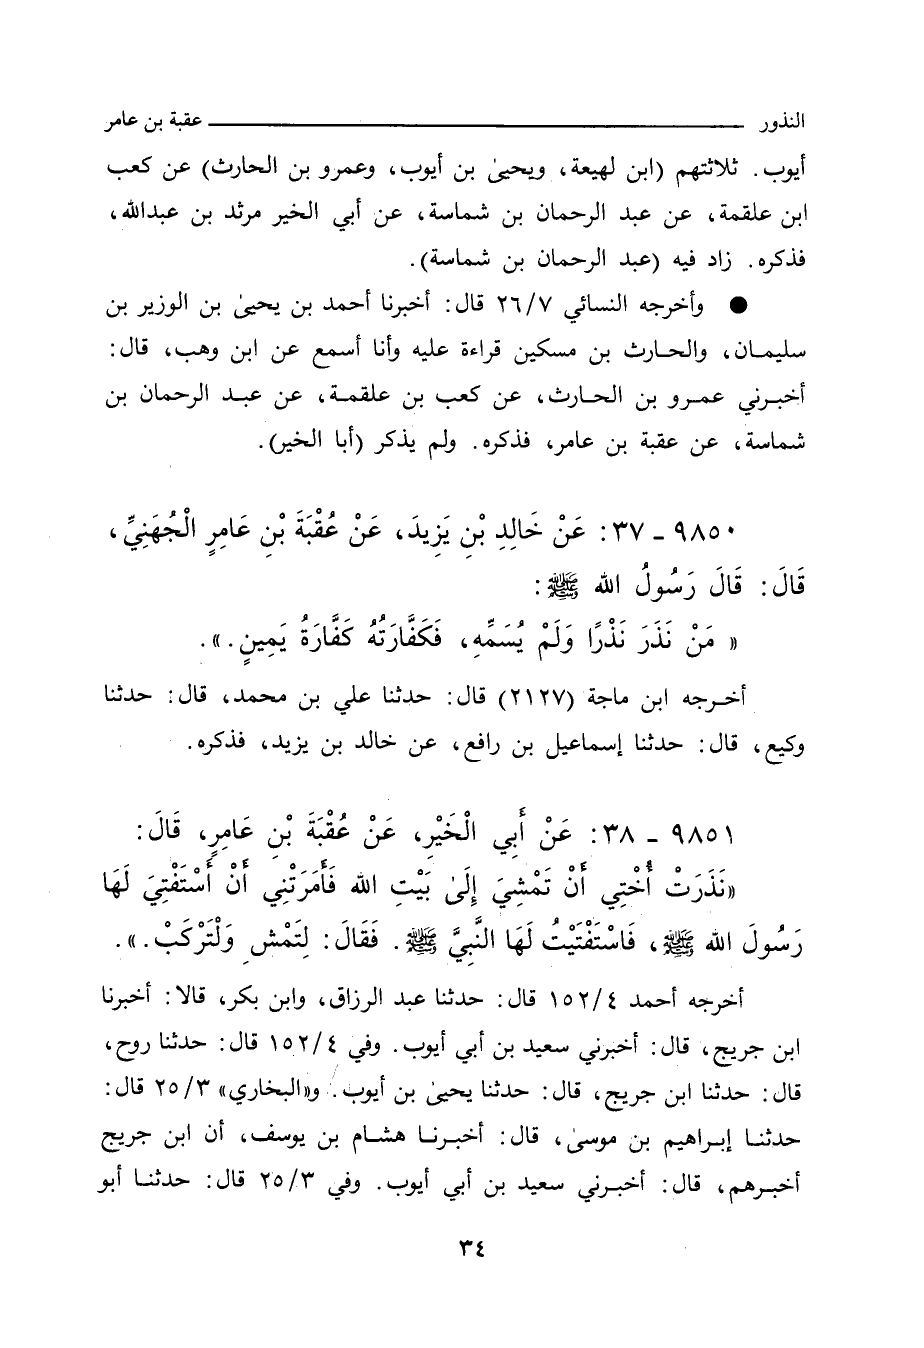 النذور ــــــــــــــــــــ عقبة بن عامر
أيوب. ثلاثتهم (ابن لهيعة، ويحيىٰ بن أيوب، وعمرو بن الحارث) عن كعب
ابن علقمة، عن عبد الرحمان بن شماسة، عن أبي الخير مرثد بن عبدالله،
فذكره. زاد فيه (عبد الرحمان بن شماسة).
● وأخرجه النسائي ٢٦/٧ قال: أخبرنا أحمد بن يحيىٰ بن الوزير بن
سليمـان، والحـارث بن مسكين قراءة عليه وأنا أسمع عن ابن وهب، قال:
أخبـرني عمـرو بن الحـارث، عن كعب بن علقمـة، عن عبـد الرحمان بن
شماسة، عن عقبة بن عامر، فذكره. ولم يذكر (أبا الخير).
٩٨٥٠ ـ ٣٧: عَنْ خَالِدِ بْنِ يَزِيدَ، عَنْ عُقْبَةَ بْنِ عَامِرٍ الْجُهَنِيِّ،
قَالَ: قَالَ رَسُولُ الله ﷺ:
« مَنْ نَذَرَ نَذْرًا وَلَمْ يُسَمِّهِ، فَكَفَّارَتُهُ كَفَّارَةُ يَمِينٍ.».
أخـرجه ابن ماجة (٢١٢٧) قال: حدثنا علي بن محمد، قال: حدثنا
وكيع، قال: حدثنا إسماعيل بن رافع، عن خالد بن يزيد، فذكره.
٩٨٥١ ـ ٣٨: عَنْ أَبِي الْخَيْرِ، عَنْ عُقْبَةَ بْنِ عَامِرٍ، قَالَ:
«نَذَرَتْ أُخْتِي أَنْ تَمْشِيَ إِلَىٰ بَيْتِ الله فَأَمَرَتْنِي أَنْ أَسْتَفْتِيَ لَهَا
رَسُولَ الله ﷺ، فَاسْتَفْتَيْتُ لَهَا النَّبِيَّ ﷺ. فَقَالَ: لِتَمْشِ وَلْتَرْكَبْ.».
أخرجه أحمد ١٥٢/٤ قال: حدثنا عبد الرزاق، وابن بكر، قالا: أخبرنا
ابن جريج، قال: أخبرني سعيد بن أبي أيوب. وفي ١٥٢/٤ قال: حدثنا روح،
قال: حدثنا ابن جريج، قال: حدثنا يحيىٰ بن أيوب. و«البخاري» ٢٥/٣ قال:
حدثنـا إبـراهيم بن موسىٰ، قال: أخبـرنـا هشـام بن يوسف، أن ابن جريج
أخبـرهم، قال: أخبـرني سعيد بن أبي أيوب. وفي ٢٥/٣ قال: حدثنـا أبو
٣٤